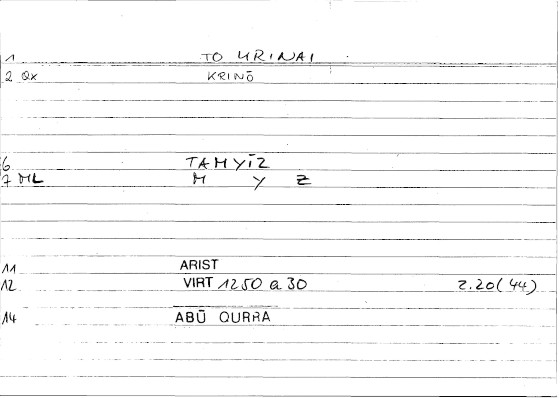 1 TO KRINAI
2 QX KRINŌ
6 TAMYĪZ
7 ML M Y Z
11 ARIST
12 VIRT 1250 a 30 2.20(44)
14 ABŪ QURRA